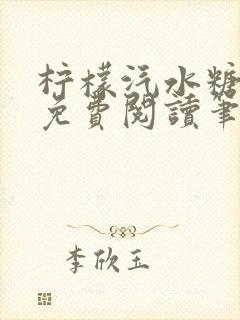 柠檬汽水糖
免費閱讀筆
李欣玉